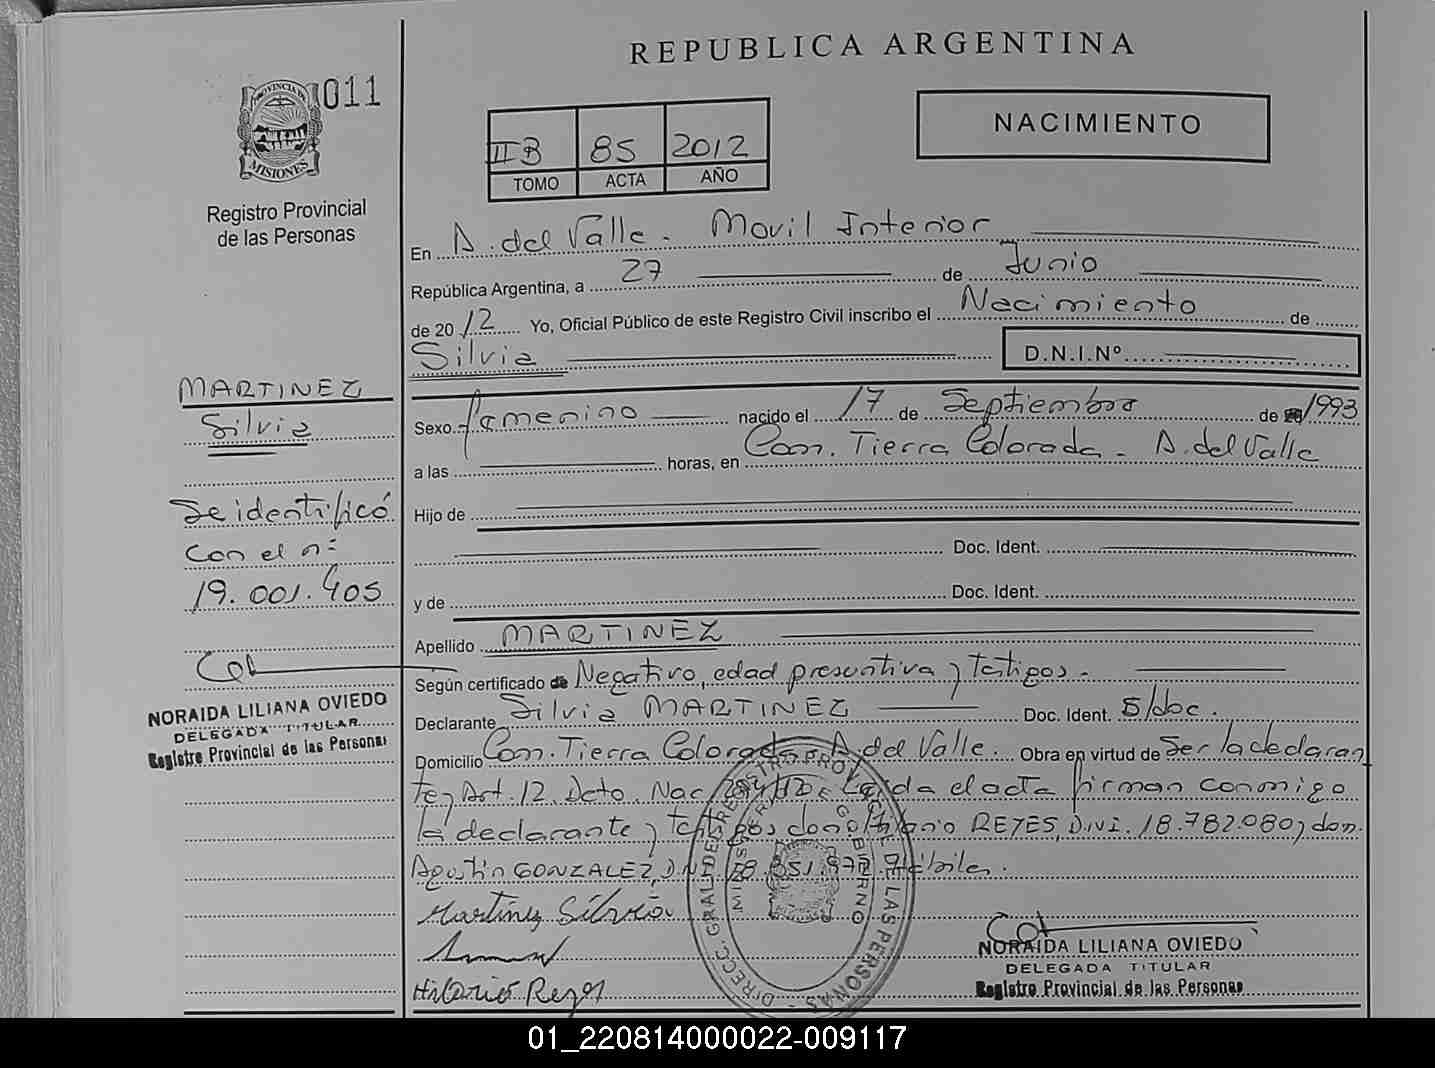 REPUBLICA ARGENTINA
011
PROVINCIA DE
MISIONES
Registro Provincial
de las Personas
NACIMIENTO
II B 85 2012
TOMO ACTA AÑO
En A. del Valle. Movil Interior
República Argentina, a 27 de Junio
de 2012 Yo, Oficial Público de este Registro Civil inscribo el Nacimiento de
Silvia D.N.I.Nº
MARTINEZ
Silvia
Se identificó
con el nº
19.001.405
NORAIDA LILIANA OVIEDO
DELEGADA TITULAR
Registro Provincial de las Personas
Sexo femenino nacido el 17 de Septiembre de 1993
a las horas, en Com. Tierra Colorada - A. del Valle
Hijo de
Doc. Ident.
y de Doc. Ident.
Apellido MARTINEZ
Según certificado de Negativo, edad presuntiva y testigos.
Declarante Silvia MARTINEZ Doc. Ident. S/doc.
Domicilio Com. Tierra Colorada. A. del Valle. Obra en virtud de Ser la declaran
te y Art. 12. Dcto. Nac. Leída el acta firman conmigo
la declarante y testigos don Hilario REYES, D.N.I. 18.782.080 y don
Agustin GONZALEZ, D.N.I. hábiles.
Martinez Silvia
Hilario Reyes
DIRECC. GRAL. DEL REGISTRO PROVINCIAL DE LAS PERSONAS
MINISTERIO GOBIERNO
NORAIDA LILIANA OVIEDO
DELEGADA TITULAR
Registro Provincial de las Personas
01_220814000022-009117